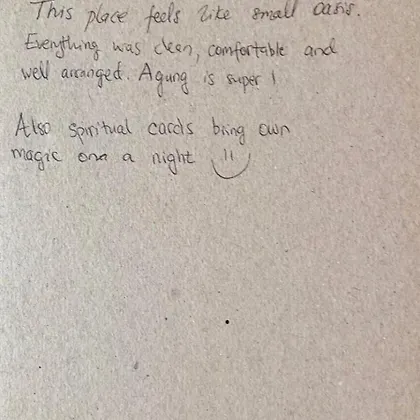 This place feels like small oasis.
Everything was clean, comfortable and
well arranged. Agung is super !
Also spiritual cards bring own
magic on a night